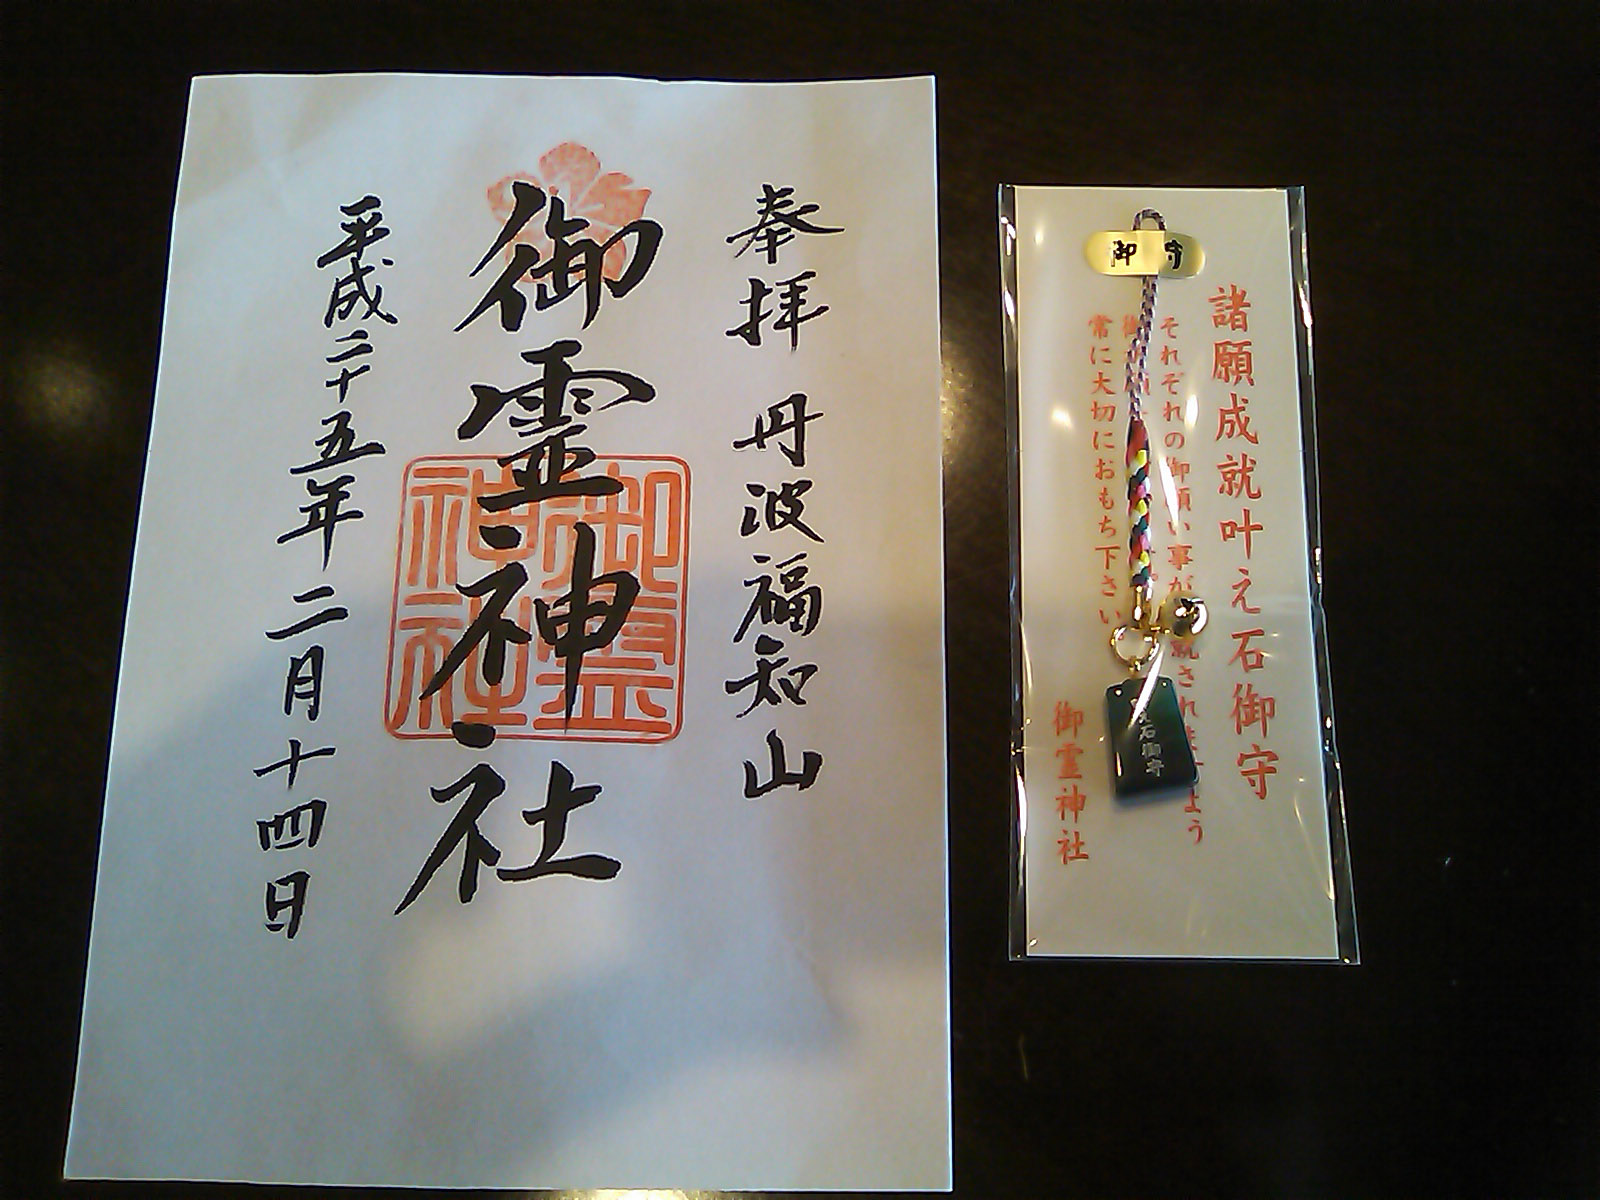 奉拝 丹波福知山
御霊神社
御霊神社
平成二十五年二月十四日
御守
諸願成就叶え石御守
それぞれの御願い事が
されますよう
常に大切におもち下さい
御霊神社
石御守